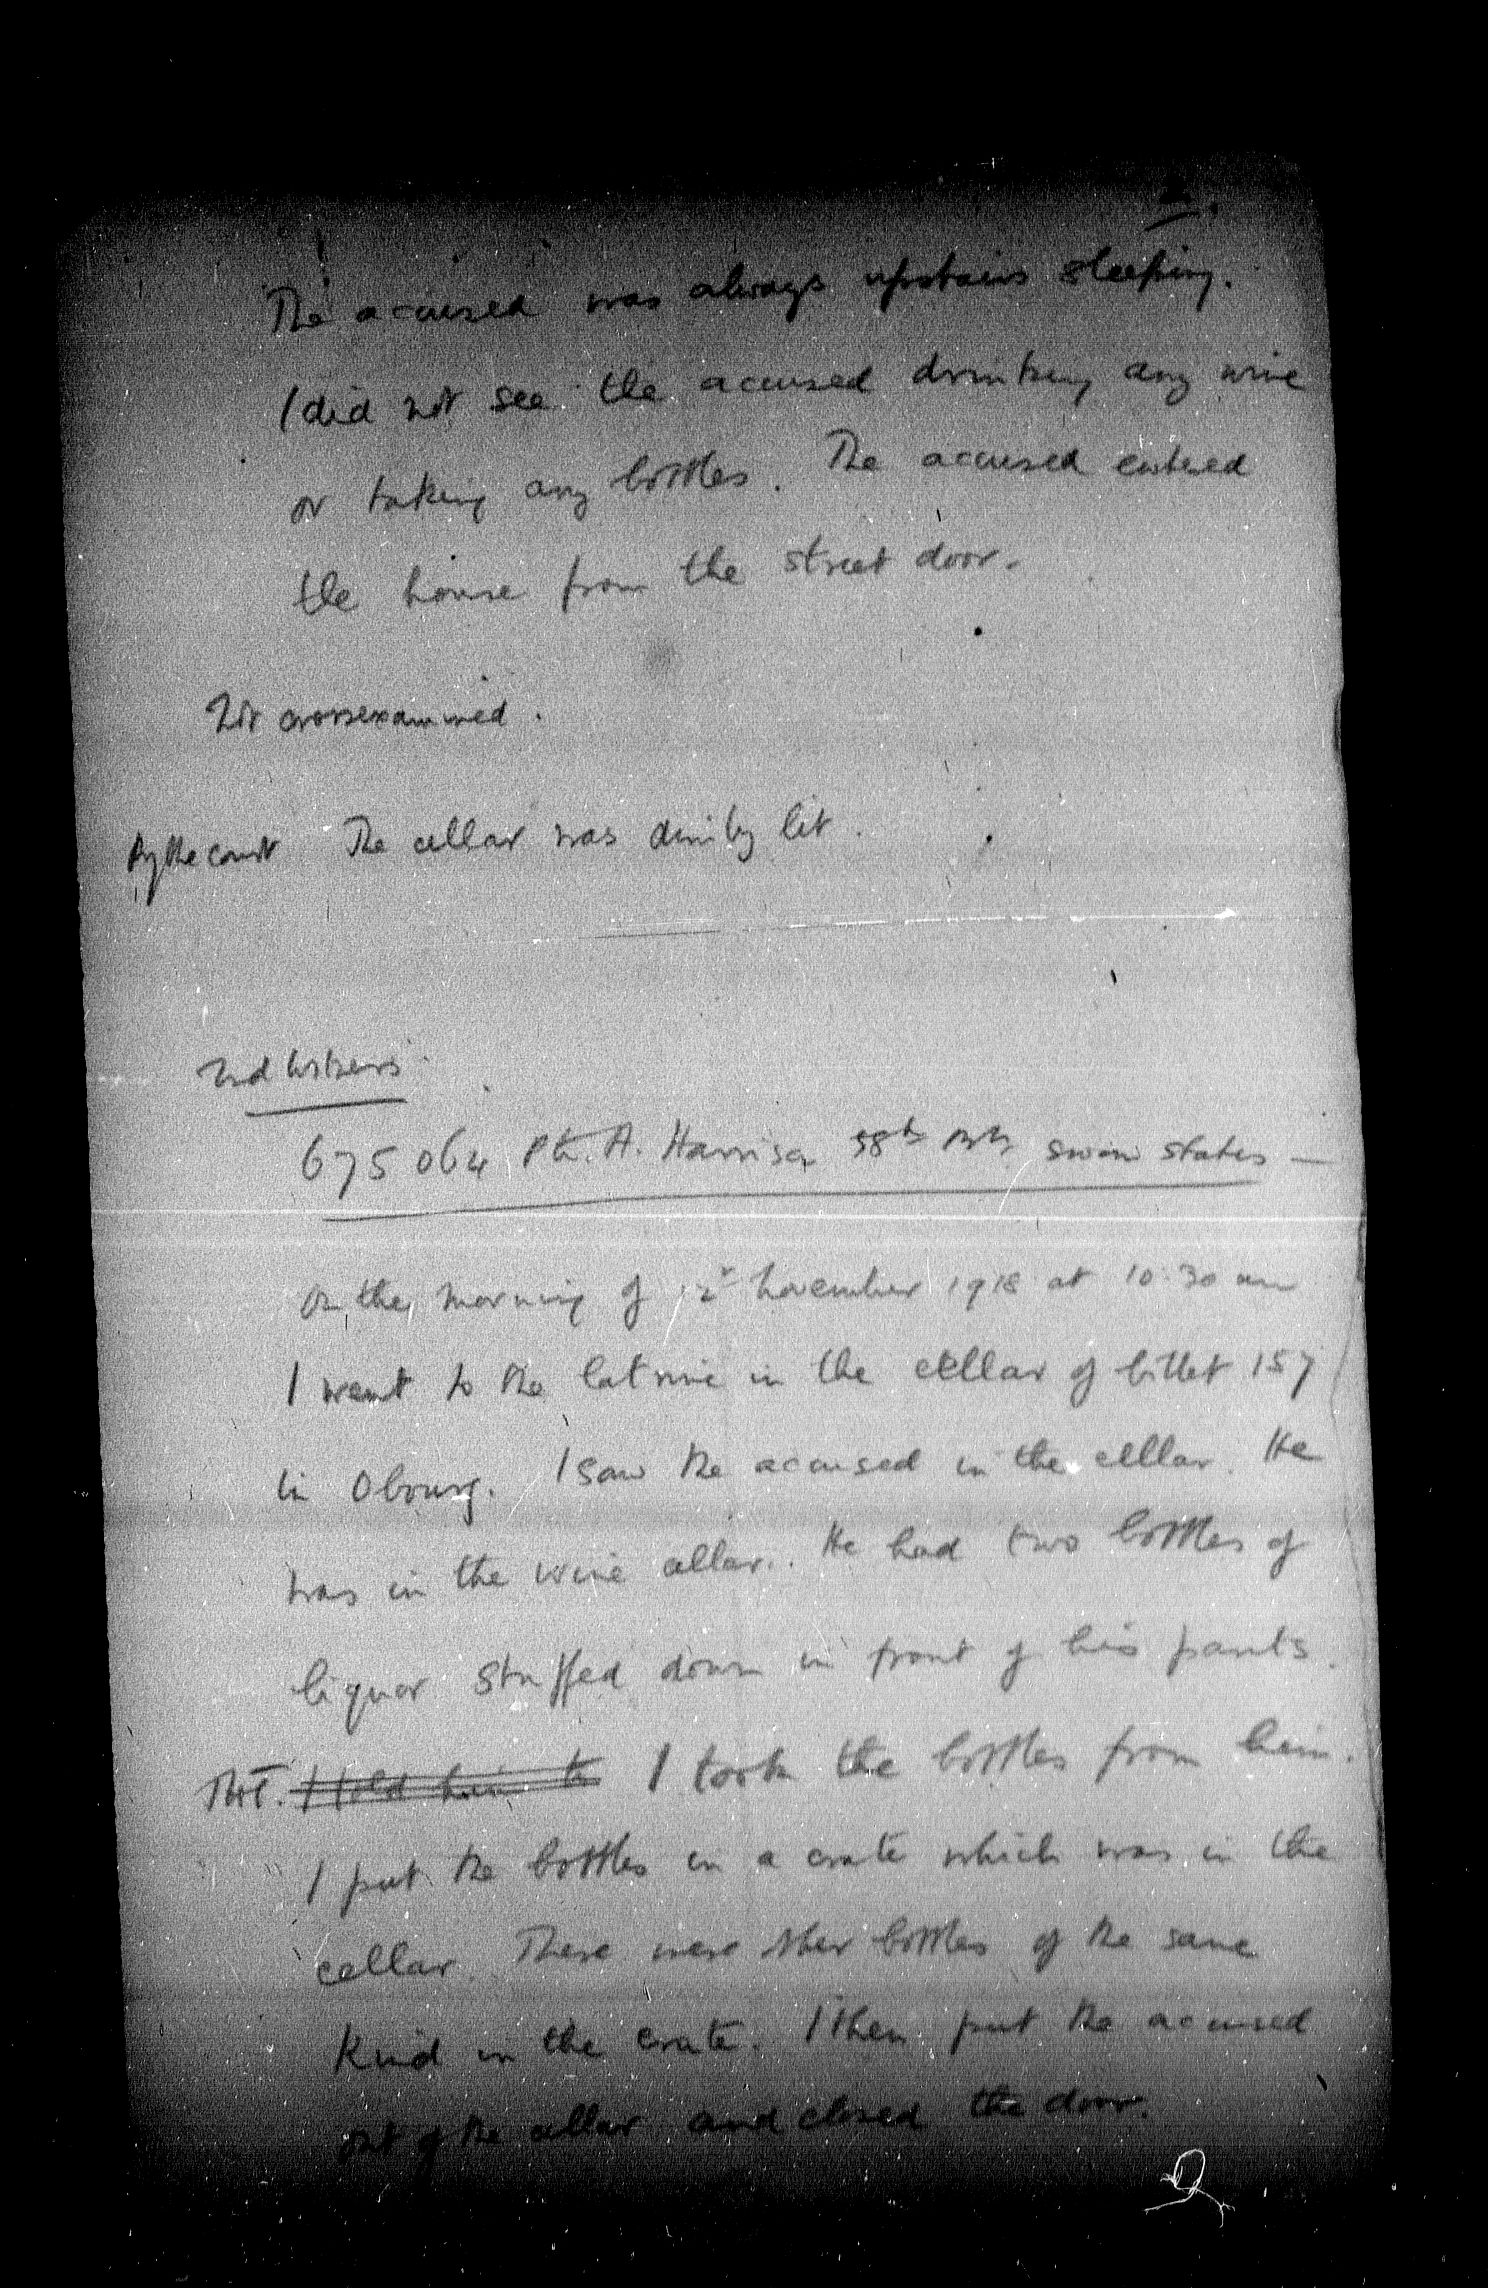 2.
The accused was always upstairs sleeping.
I did not see the accused drinking any wine
or taking any bottles. The accused entered
the house from the street door.
Not crossexamined.
By the court The cellar was dimly lit.
2nd Witness
675064 Pte. A. Harrison 58th Bn sworn states —
On the morning of 12th November 1918 at 10.30 am
I went to the latrine in the cellar of billet 157
in Obourg. I saw the accused in the cellar. He
was in the wine cellar. He had two bottles of
liquor stuffed down in front of his pants.
I told him to I took the bottles from him.
I put the bottles in a crate which was in the
cellar. There were other bottles of the same
kind in the crate. I then put the accused
out of the cellar and closed the door.